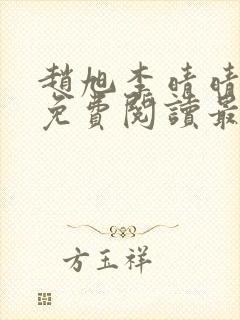 趙旭李晴晴
免費閱讀最
方玉祥